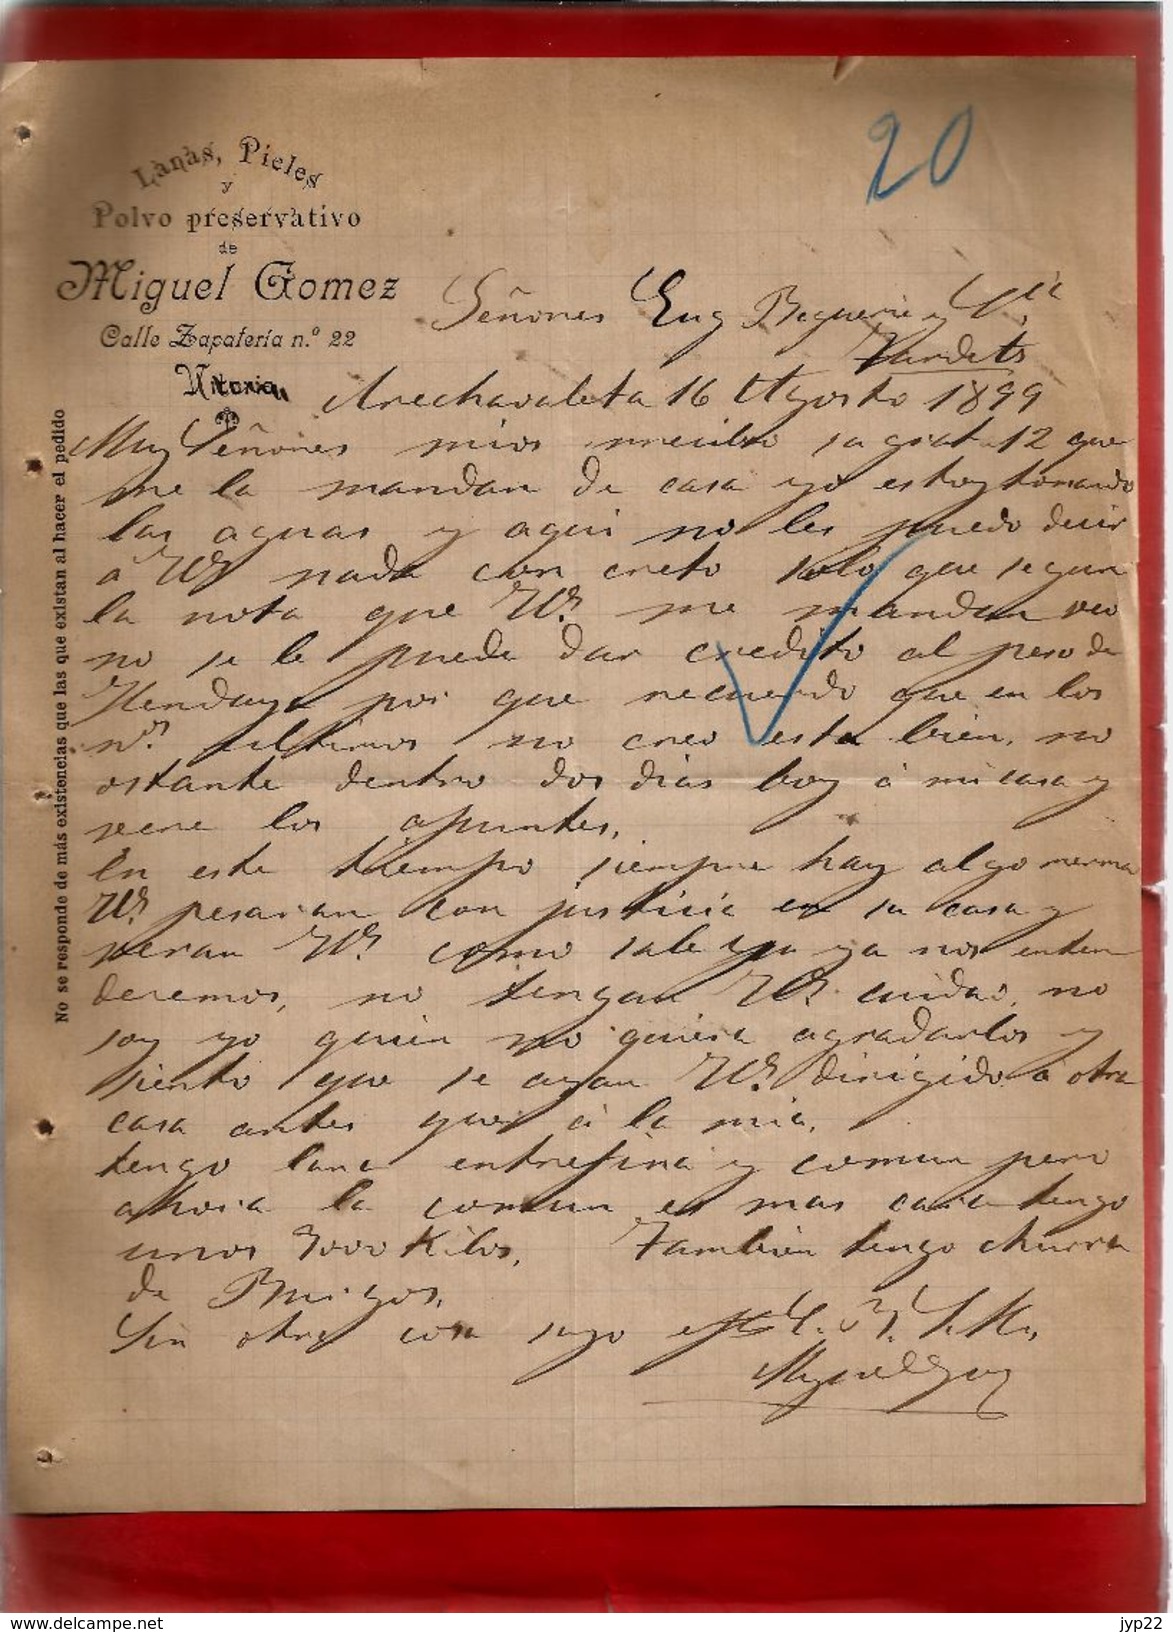 20
Lanas, Pieles
y
Polvo preservativo
de
Miguel Gomez
Calle Zapatería n.º 22
Vitoria
No se responde de más existencias que las que existan al hacer el pedido
Señores Eug Beguerie y Cia
Arechavaleta 16 Agosto 1899
Muy Señores mios recibo su grat 12 que
me la mandan de casa yo estoy tomando
las aguas y aqui no les puedo decir
á Vds nada con creto solo que segun
la nota que Vds. me mandan veo
no se le puede dar credito al peso de
Hendaya por que recuerdo que en los
nos. ultimos no creo esta bien, no
ostante dentro dos dias boy á mi casa y
vere los apuntes.
En este tiempo siempre hay algo merma
Vds. pesaran con justicia en su casa y
veran Vds. como sale y ya nos enten
deremos, no tengan Vds. cuidao, no
soy yo quien no quiera agradarlos y
siento que se ayan Vds. dirigido a otra
casa antes que á la mia.
tengo lana entrefina y comun pero
ahora la comun es mas cara tengo
unos 9000 Kilos, Tambien tengo churra
de Burgos,
Sin otra cosa suyo S. M.
Miguel Gomez
© www.delcampe.net
jyp22